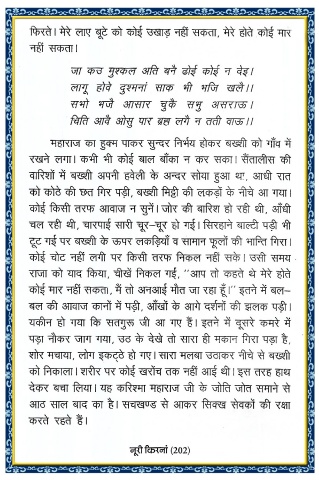 फिरते। मेरे लाए बूटे को कोई उखाड़ नहीं सकता, मेरे होते कोई मार
नहीं सकता।
जा कउ मुश्कल अति बनै ढोई कोई न देइ।
लागू होवे दुश्मनां साक भी भजि खले।।
सभो भजै आसार चुकै सभु असराऊ।
चिति आवै ओसु पार ब्रह्म लगै न तती वाऊ।।
महाराज का हुक्म पाकर सुन्दर निर्भय होकर बख्शी को गाँव में
रखने लगा। कभी भी कोई बाल बाँका न कर सका। सैंतालीस की
वारिशों में बख्शी अपनी हवेली के अन्दर सोया हुआ था, आधी रात
को कोठे की छत गिर पड़ी, बख्शी मिट्टी की लकड़ों के नीचे आ गया।
कोई किसी तरफ आवाज न सुनें। जोर की बारिश हो रही थी, आँधी
चल रही थी, चारपाई सारी चूर-चूर हो गई। सिरहाने बाल्टी पड़ी भी
टूट गई पर बख्शी के ऊपर लकड़ियाँ व सामान फूलों की भान्ति गिरा।
कोई चोट नहीं लगी पर किसी तरफ निकल नहीं सके। उसी समय
राजा को याद किया, चीखें निकल गईं, ''आप तो कहते थे मेरे होते
कोई मार नहीं सकता, मैं तो अनआई मौत जा रहा हूँ।'' इतने में बल-
बल की आवाज कानों में पड़ी, आँखों के आगे दर्शनों की झलक पड़ी।
यकीन हो गया कि सतगुरू जी आ गए हैं। इतने में दूसरे कमरे में
पड़ा नौकर जाग गया, उठ के देखे तो सारा ही मकान गिरा पड़ा है,
शोर मचाया, लोग इकट्ठे हो गए। सारा मलबा उठाकर नीचे से बख्शी
को निकाला। शरीर पर कोई खरोंच तक नहीं आई थी। इस तरह हाथ
देकर बचा लिया। यह करिश्मा महाराज जी के जोति जोत समाने से
आठ साल बाद का है। सचखण्ड से आकर सिक्ख सेवकों की रक्षा
करते रहते हैं।
नूरी किरनां (202)